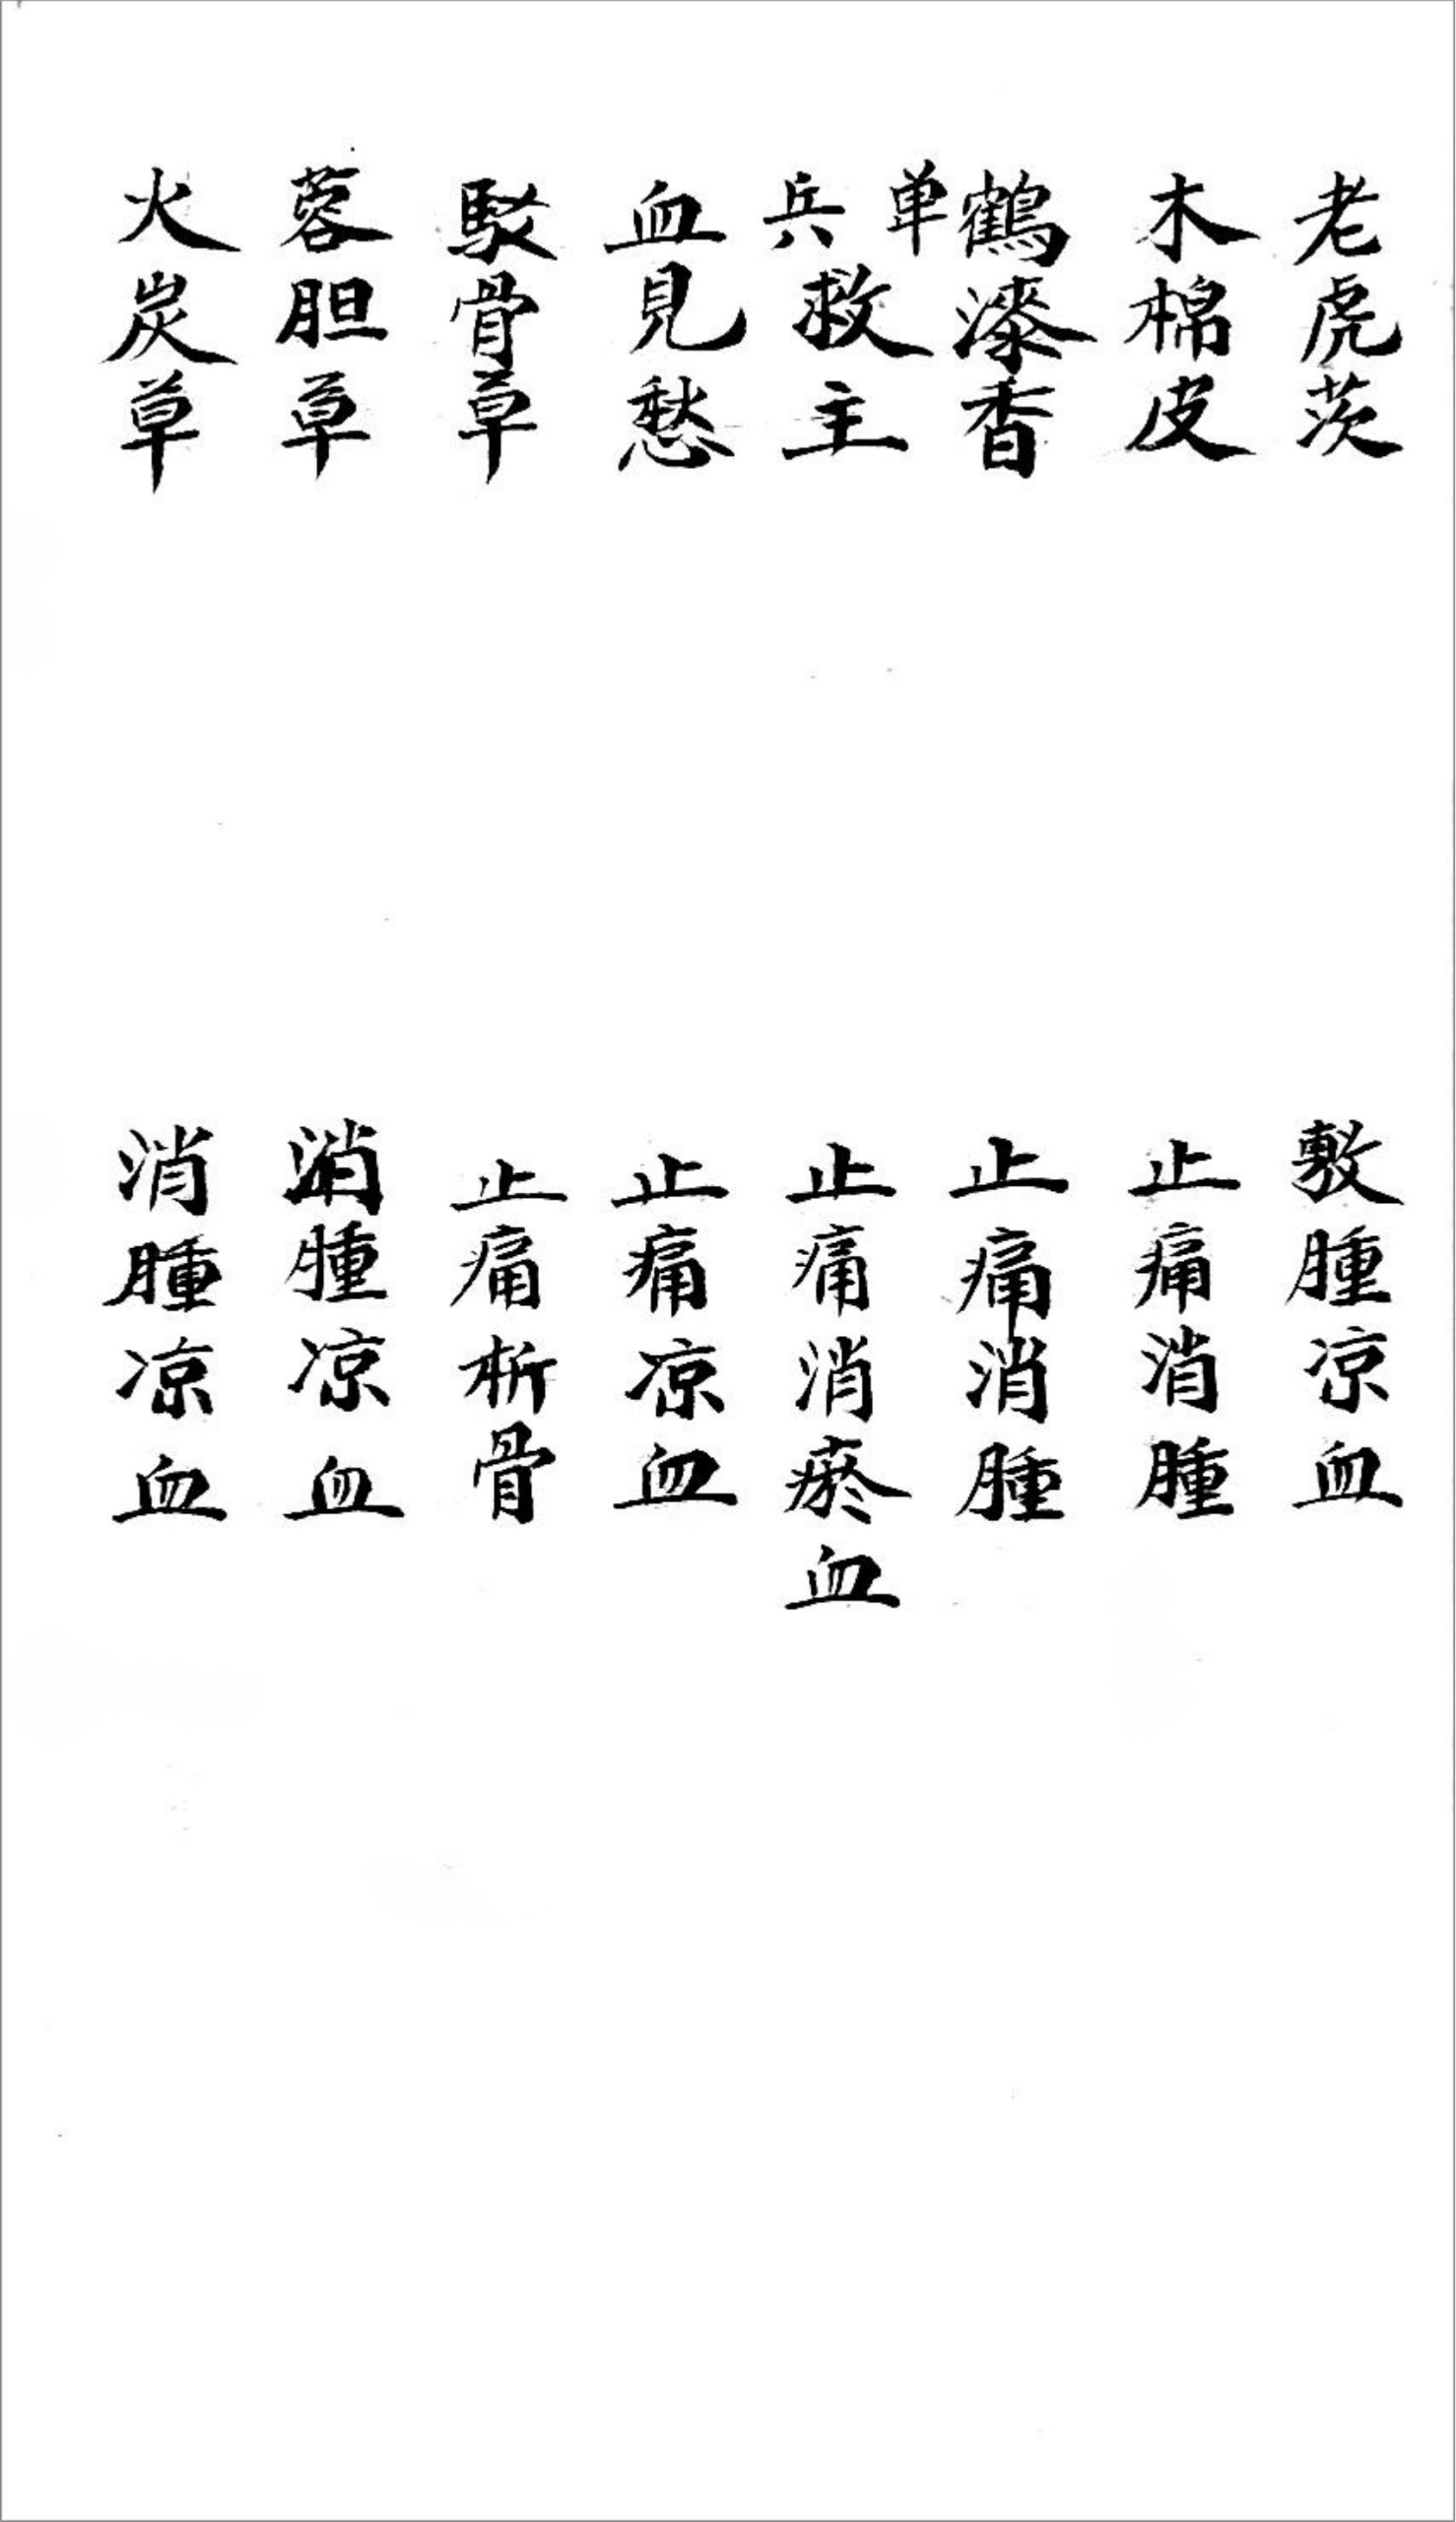 老虎茨 敷腫凉血
木棉皮 止痛消腫
鶴漆香 止痛消腫
单兵救主 止痛消瘀血
血見愁 止痛凉血
駁骨草 止痛析骨
蓉胆草 消腫凉血
火炭草 消腫凉血